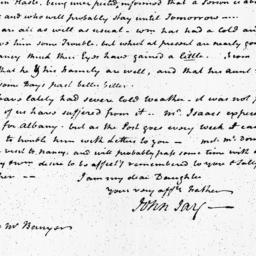 in Haste, being interrupted, informed that a Person is abo
and who will probably stay until Tomorrow —
are all as well as usual. wm has had a cold an
gives him some Trouble. but which at present are nearly gon
Nancy thinks their Eyes have gained a little. from
that he & his Family are well, and that his aunt
some Days past better
have lately had severe cold weather. it was not
of us have suffered from it. Mr. Isaacs expec
for Albany. but as the Post goes every week it ca
to trouble him with Letters to you —
visit to Nancy, and will probably pass some time with
my own desire to be affectly remembered to you & Sally
her — I am my dear Daughter
your very affte. Father
John Jay —
Mr Banyer